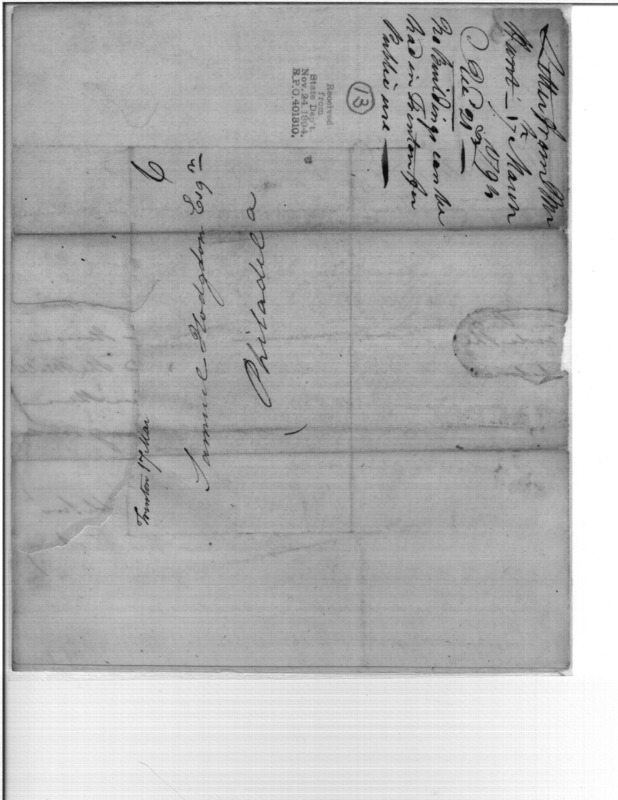 Letter from Mr
Hunt - 17th March
Rec'd 21st 1794
No Buildings can be
had in Trenton for
Public use
(13)
Received
from
State Dep't.
Nov. 24 1894.
R.P.O. 401810.
6
Samuel Hodgdon Esqr
Philadela
Trenton 17 Mar